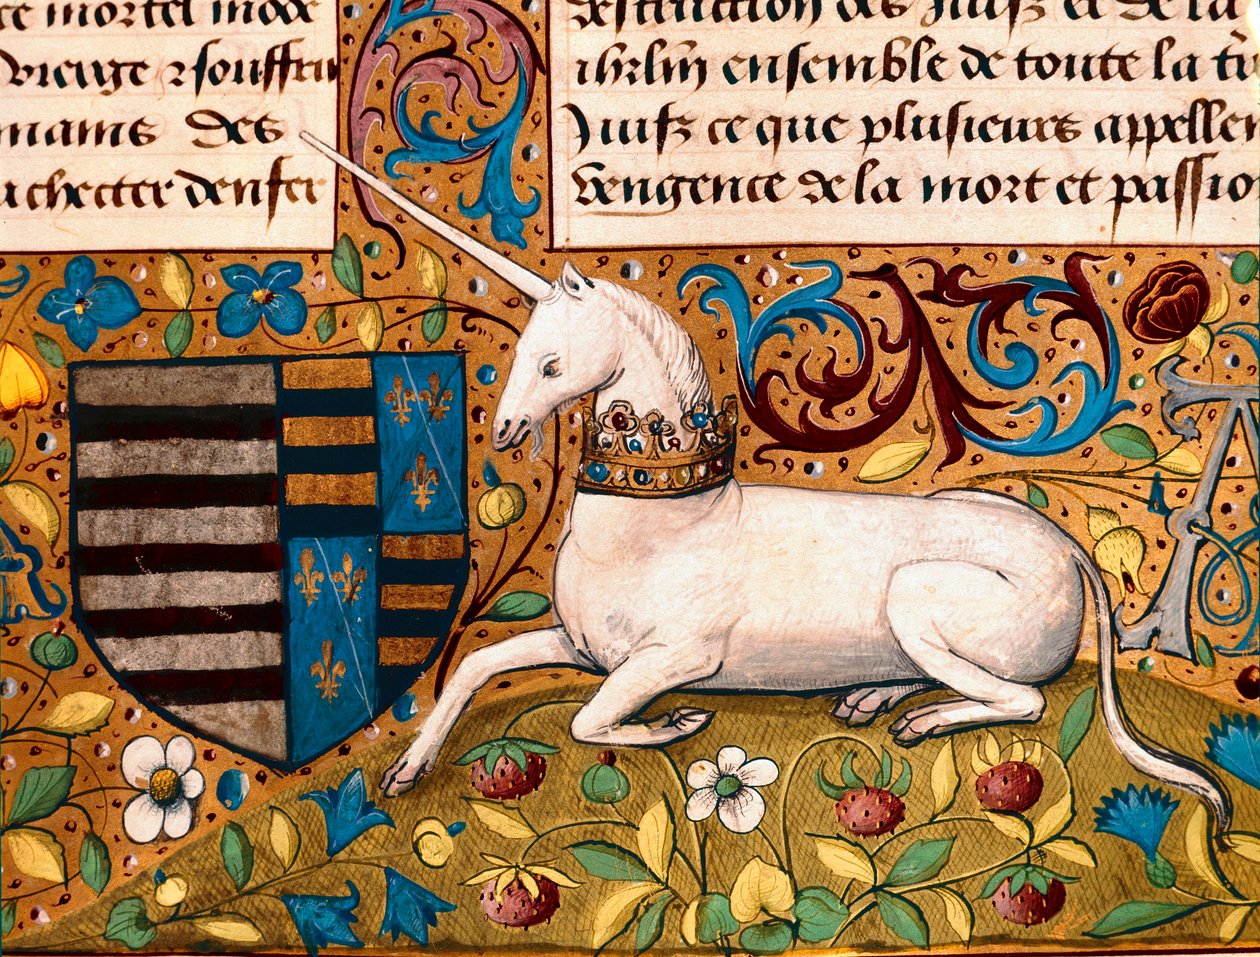 ce mortel mode
vierge ⁊ souffri
mains des
achetter denfer
destruction des Juifz et de la
ihrlm ensemble de toute la
Juifz ce que plusieurs appellen
Vengence de la mort et passio